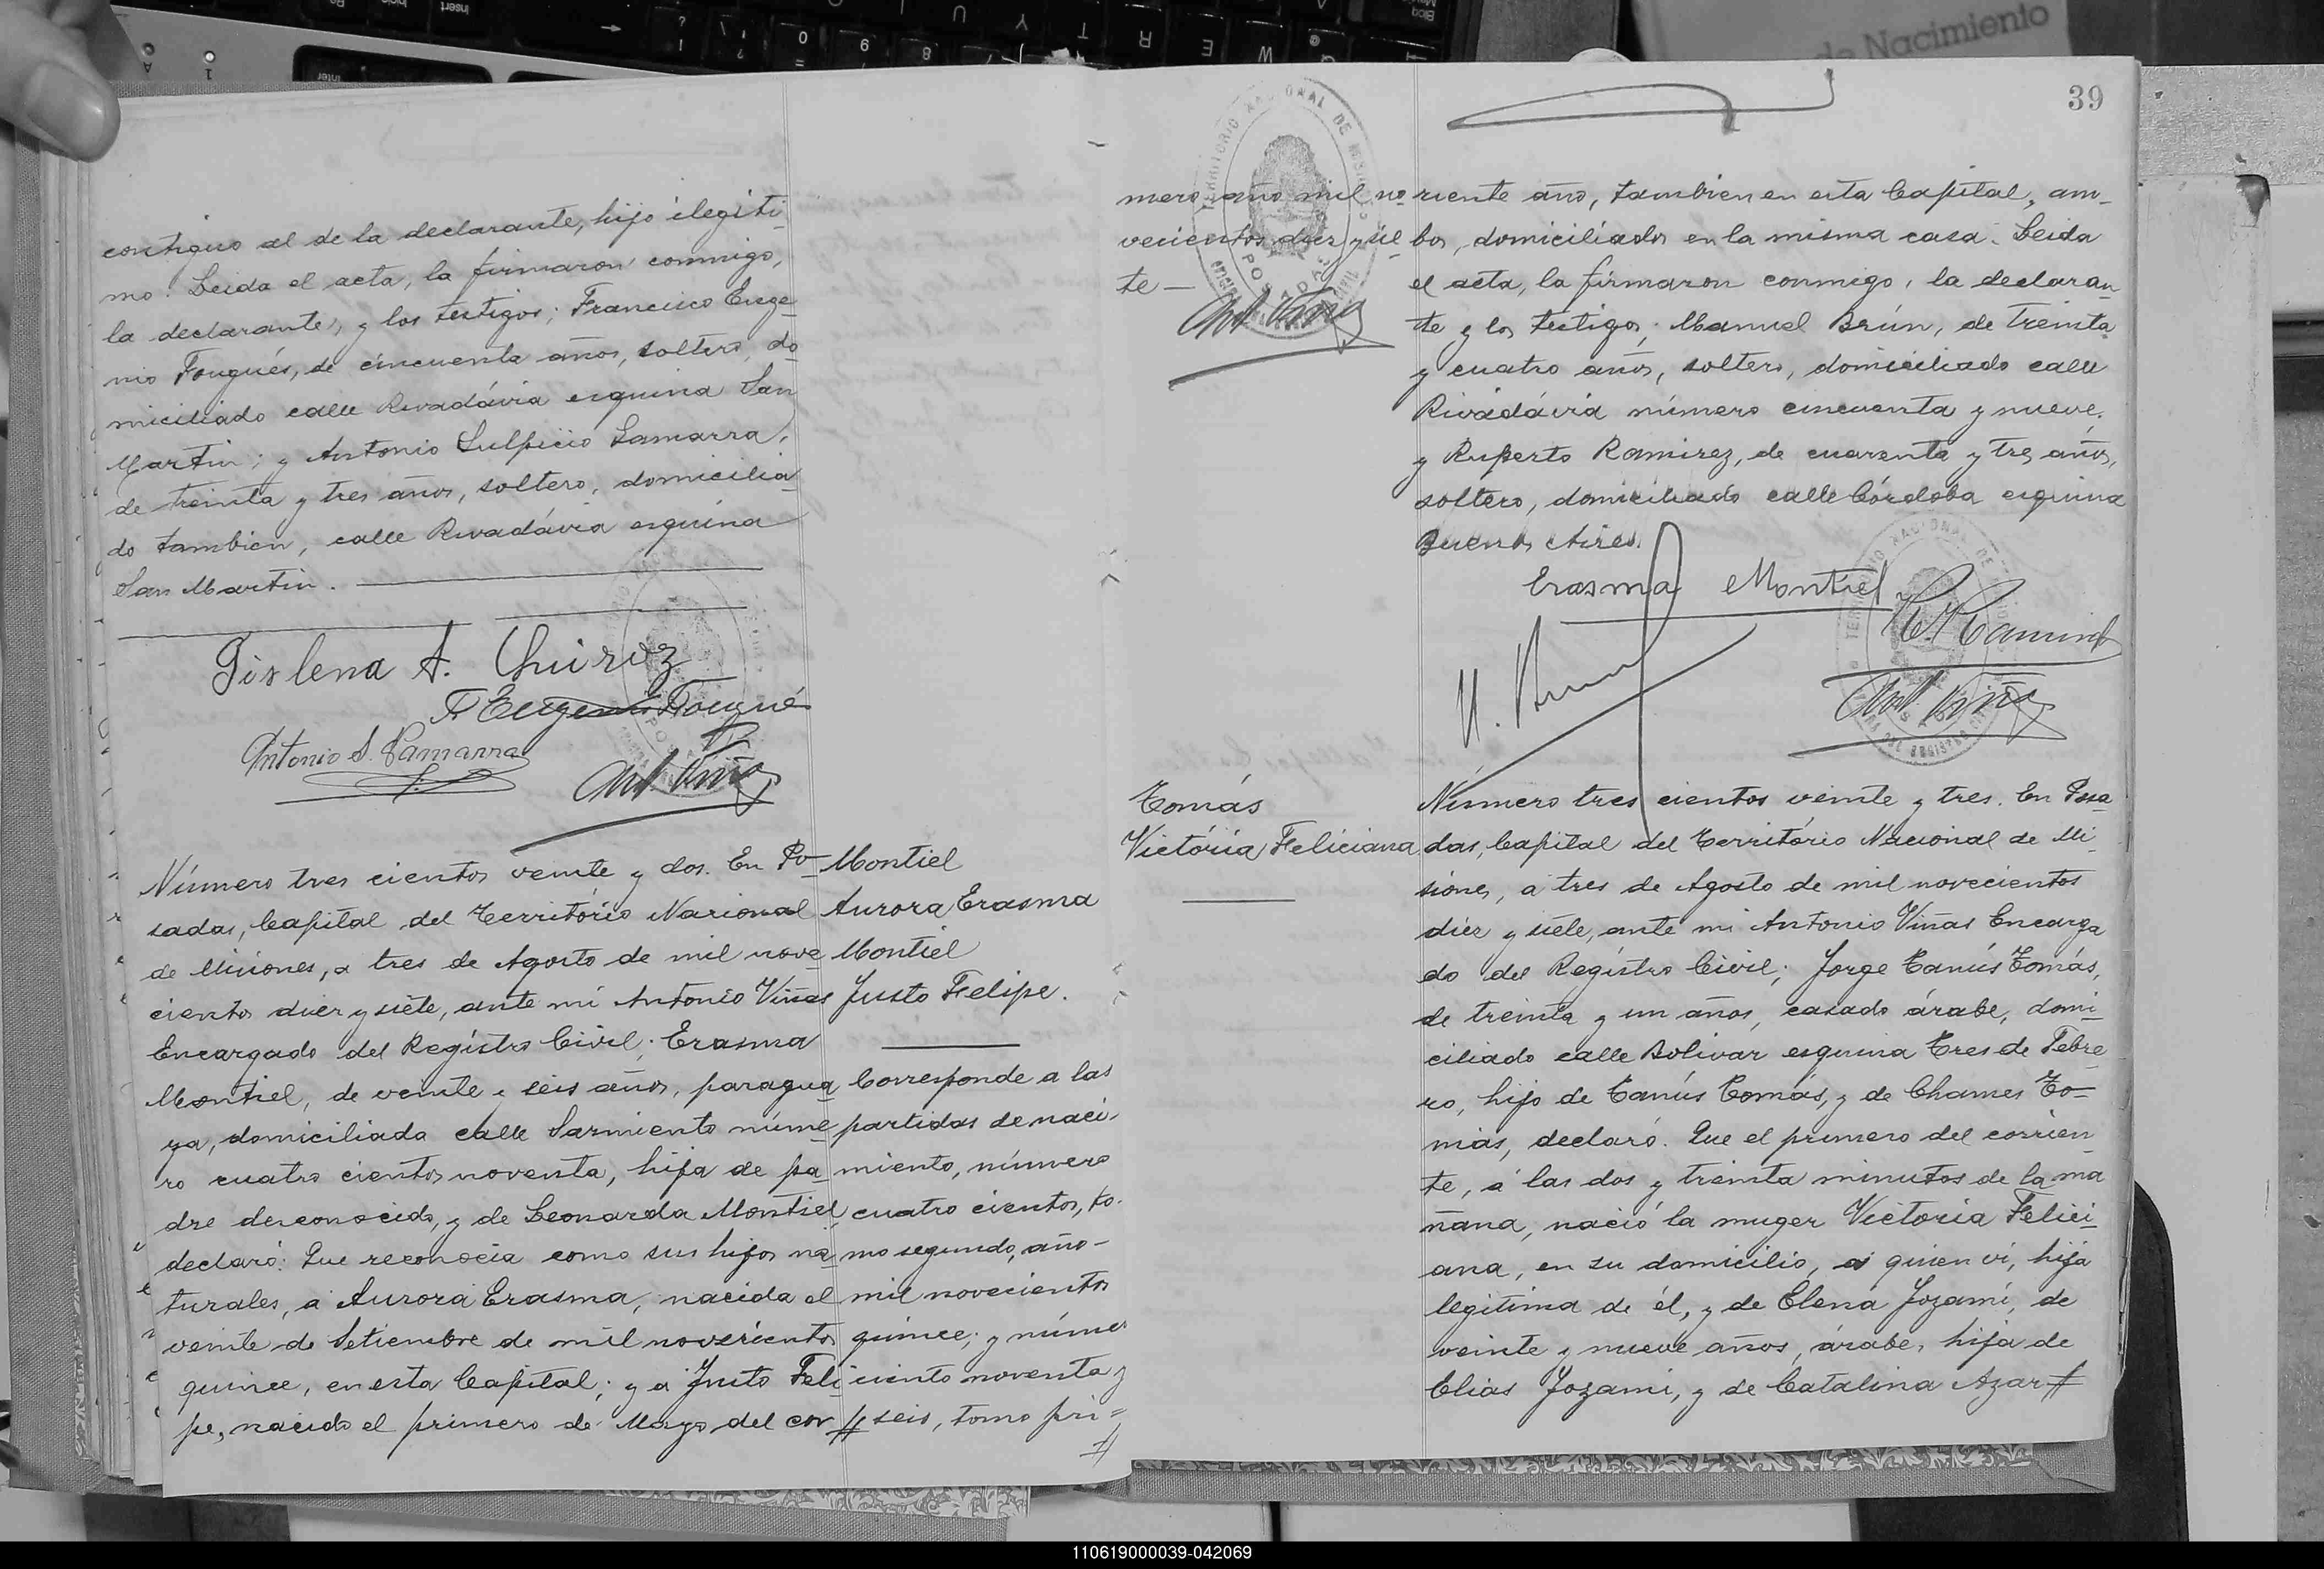 de Nacimiento
39
contiguo al de la declarante, hijo ilegíti-
mo. Leida el acta, la firmaron conmigo,
la declarante, y los testigos; Francisco Euge-
nio Fougués, de cincuenta años, soltero, do-
miciliado calle Rivadávia esquina San
Martin; y Antonio Sulpicio Lamarra,
de treinta y tres años, soltero, domicilia-
do tambien, calle Rivadávia esquina
San Martin.
A. Chiroz
F Eugenio Fougué
Antonio S. Lamarra
Ant. Viñas
Número tres cientos veinte y dos. En Po-
sadas, Capital del Território Nacional
de Misiones, a tres de Agosto de mil nove-
cientos diez y siete, ante mí Antonio Viñas
Encargado del Regístro Civil; Erasma
Montiel, de veinte y seis años, paragua-
ya, domiciliada calle Sarmiento núme-
ro cuatro cientos noventa, hija de pa-
dre desconocido, y de Leonarda Montiel,
declaró: Que reconocia como sus hijos na-
turales, a Aurora Erasma, nacida el
veinte de Setiembre de mil novecientos
quince, en esta Capital; y a Justo Feli-
pe, nacido el primero de Mayo del cor-
Montiel
Aurora Erasma
Montiel
Justo Felipe.
Corresponde a las
partidas de naci-
miento, número
cuatro cientos, to-
mo segundo, año-
mil novecientos
quince; y número
ciento noventa y
# seis, tomo pri=
#
mero año mil no-
vecientos diez y sie-
te-
Ant. Viñas
TERRITORIO NACIONAL DE MISIONES
POSADAS
riente año, tambien en esta Capital, am-
bos, domiciliados en la misma casa. Leida
el acta, la firmaron conmigo, la declaran-
te y los testigos; Manuel Brún, de treinta
y cuatro años, soltero, domiciliado calle
Rivadávia número cincuenta y nueve,
y Ruperto Ramirez, de cuarenta y tres años,
soltero, domiciliado calle Córdoba esquina
Buenos Aires.
Erasma Montiel
R. Ramirez
M. Brun
Ant. Viñas
Tomás
Victória Feliciana
Número tres cientos veinte y tres. En Posa-
das, Capital del Território Nacional de Mi-
siones, a tres de Agosto de mil novecientos
diez y siete, ante mi Antonio Viñas Encarga-
do del Regístro Civil; Jorge Tanús Tomás,
de treinta y un años, casado árabe, domi-
ciliado calle Bolivar esquina Tres de Febre-
ro, hijo de Tanús Tomás, y de Chames To-
más, declaró. Que el primero del corrien-
te, a las dos y treinta minutos de la ma-
ñana, nació la muger Victoria Felici-
ana, en su domicilio, a quien vi, hija
legitima de él, y de Elena Jozami, de
veinte y nueve años, árabe, hija de
Elias Jozami, y de Catalina Azar #
110619000039-042069